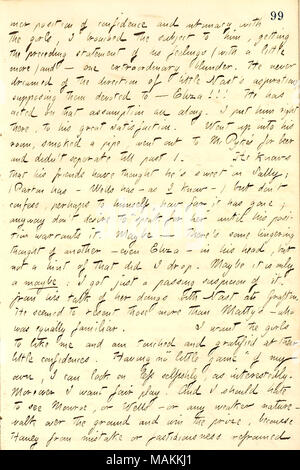 99
mer position of confidence and intimacy with
the girls, I broached the subject to him, getting
the preceding statement of his feelings (with a little
more) and — one extraordinary blunder. He never
dreamed of the direction of little Nast's aspirations
supposing them devoted to — Eliza!!! He has
acted on that assumption all along. I put him right
there, to his great satisfaction. Went up into his
room, smoked a pipe, went out to McDykes for beer
and didn't separate till past 1. He knows
that his friends have thought he's sweet on Sally;
(Parton has — Wells has — as I know —) but don't
confess, perhaps to himself, how far it has gone;
anyway don't desire to speak for her until his posi-
tion warrants it. Maybe there's some lingering
thought of another — even Eliza — in his head, but
not a hint of that did I drop. Maybe it is only
a maybe; I got just a passing suspicion of it
from his talk of her doings with Nast at Grafton.
He seemed to resent those more than Matty's — who
was equally familiar. I want the girls
to like me and am touched and gratified at their
little confidences. Having no "little game" of my
own, I can look on life selfishly, as interestedly.
Moreover I want fair play. And I should hate
to see Monroe, or Wells — or any weaker nature
walk over the ground and win the prize, because
Haney from mistake or fastidiousness refrained